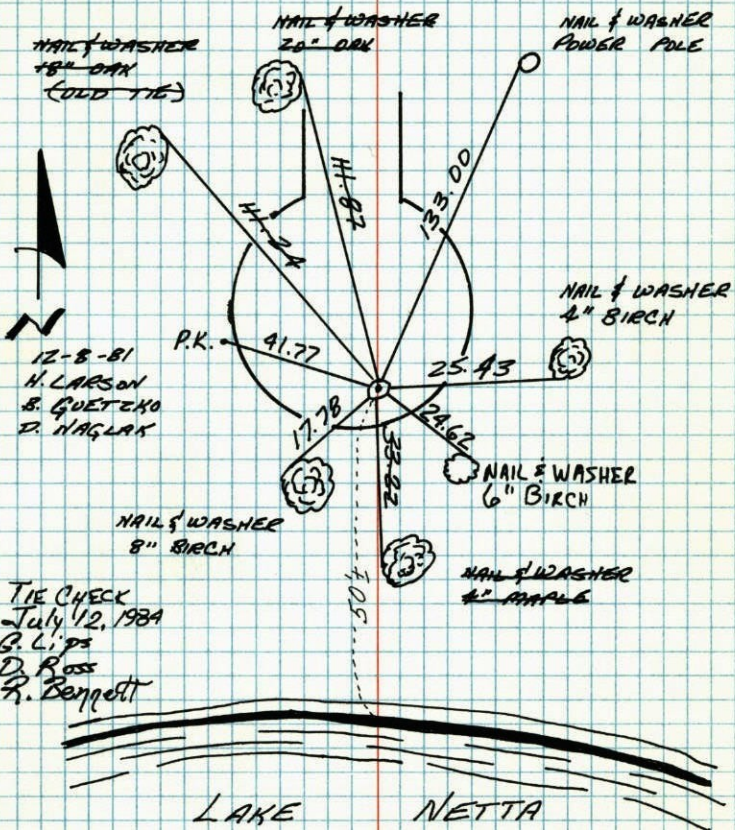 NAIL & WASHER
20" OAK
NAIL & WASHER
POWER POLE
NAIL & WASHER
18" OAK
(OLD TIE)
41.87
133.00
41.24
NAIL & WASHER
4" BIRCH
N
12-8-81
H. LARSON
B. GUETZKO
D. NAGLAK
P.K.
41.77
25.43
17.78
24.62
33.22
NAIL & WASHER
6" BIRCH
NAIL & WASHER
8" BIRCH
NAIL & WASHER
4" MAPLE
TIE CHECK
July 12, 1984
G. Lips
D. Ross
R. Bennett
LAKE NETTA